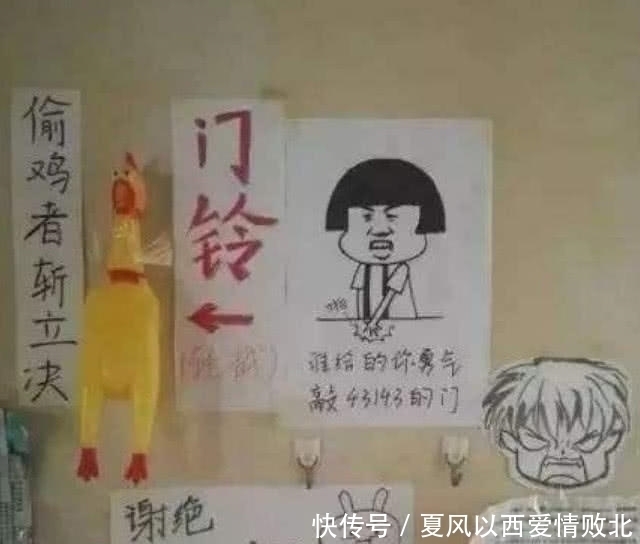 偷鸡者斩立决
门铃
谁给的你勇气
敲43143的门
谢绝
快传号/夏风以西爱情败北